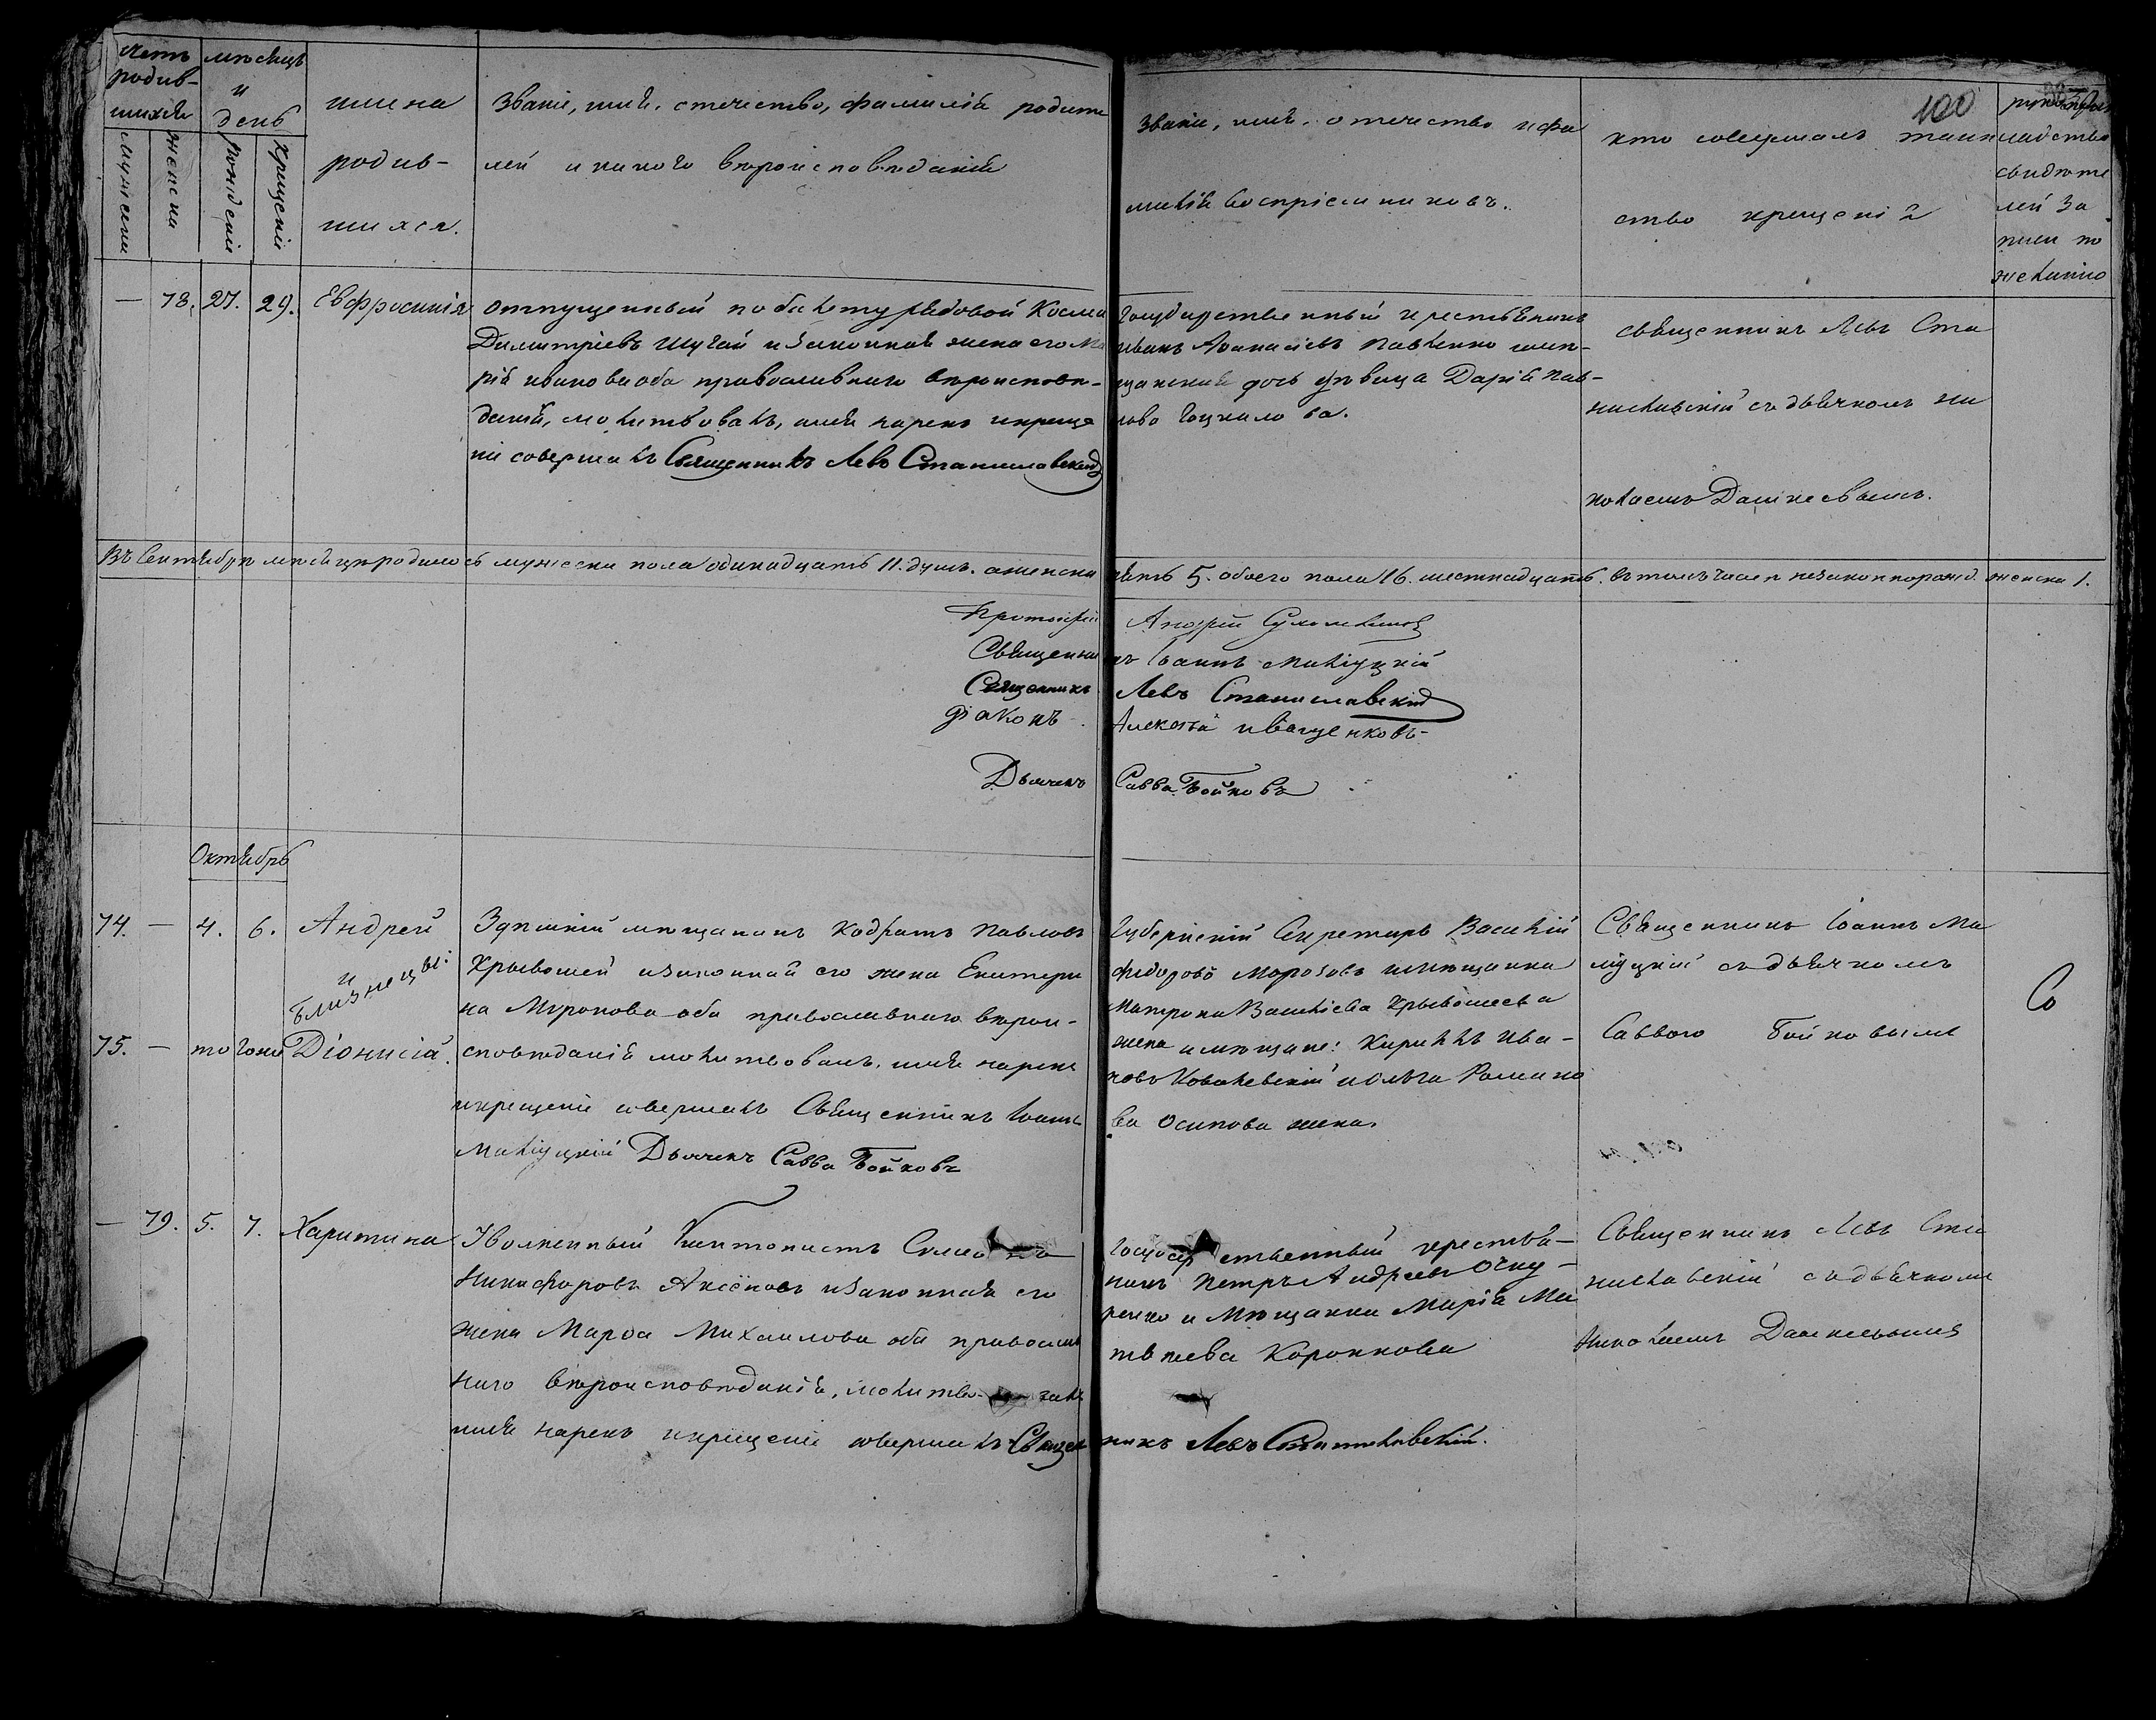 счетъ родив-шихся
мѣсяцъ и день
имена родив-шихся.
Званіе, имя, отчество, фамилія родите
лей и какого вѣроисповѣданія
Званіе, имя, отчество и фа
милія воспріемниковъ.
100
кто совершалъ таин
ство крещенія
свидѣте
лей за
писи по
желанію
мужеска
женска
рожденія
крещенія
— 73. 27. 29. Евфросинія
отпущенный по билету рядовой Косма
Димитріевъ Шугай и законная жена его Ма
рія иванова оба православнаго вѣроисповѣ-
данія, молитвовалъ, имя нарекъ и креще
ніе совершалъ Священникъ Левъ Станиславскій
Государственный крестьянинъ
иванъ Аѳанасіевъ Павленко
дочь дѣвица Дарія Пав-
лова
священникъ Левъ Ста
ниславскій съ дьячкомъ Ни
колаемъ Дашкевымъ.
Въ Сентябрѣ мѣсяцѣ родилось мужеска пола одинадцать 11. душъ. а женска
пять 5. обоего пола 16. шестнадцать. въ томъ числѣ незаконнорожд. женска 1.
Протоіерей Андрей
Священникъ Іоаннъ Малуцкій
Священникъ Левъ Станиславскій
Діаконъ Алексѣй иващенковъ
Дьячекъ Савва Бойковъ
Октябрь
74. — 4. 6. Андрей
и близнецы:
75. — того же Діонисій.
Здѣшній мѣщанинъ Кодратъ Павловъ
Крывошей и законная его жена Екатери
на Миронова оба православнаго вѣрои-
сповѣданія молитвовалъ, имя нарекъ
и крещеніе совершалъ Священникъ Іоаннъ
Малуцкій Дьячекъ Савва Бойковъ
Губернскій Секретарь Василій
Фидоровъ Морозовъ и мѣщанка
Матрона Василіева Крывошеева
жена и мѣщане: Кириллъ Ива-
новъ Ковалевскій и Ольга Романо
ва Осипова жена.
Священникъ Іоаннъ Ма
луцкій съ дьячкомъ
Саввою Бойковымъ
— 79. 5. 7. Харитина
Уволненный
Никифоровъ Аксёновъ и законная его
жена Марѳа Михаилова оба православ
наго вѣроисповѣданія, молитво валъ
имя нарекъ и крещеніе совершалъ Священ
никъ Левъ Станиславскій.
Государственный крестья-
нинъ Петръ Андреевъ Очку-
ренко и Мѣщанка Марія Ма
твѣева Коронкова
Священникъ Левъ Ста
ниславскій съ дьячкомъ
Николаемъ Дашкевымъ